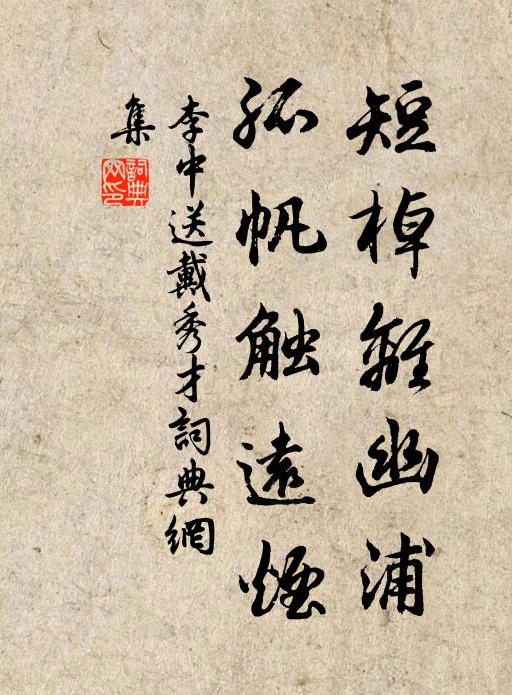 短棹離幽浦
孤帆触遠煙
李中送戴秀才詞典網
集
詞典網印